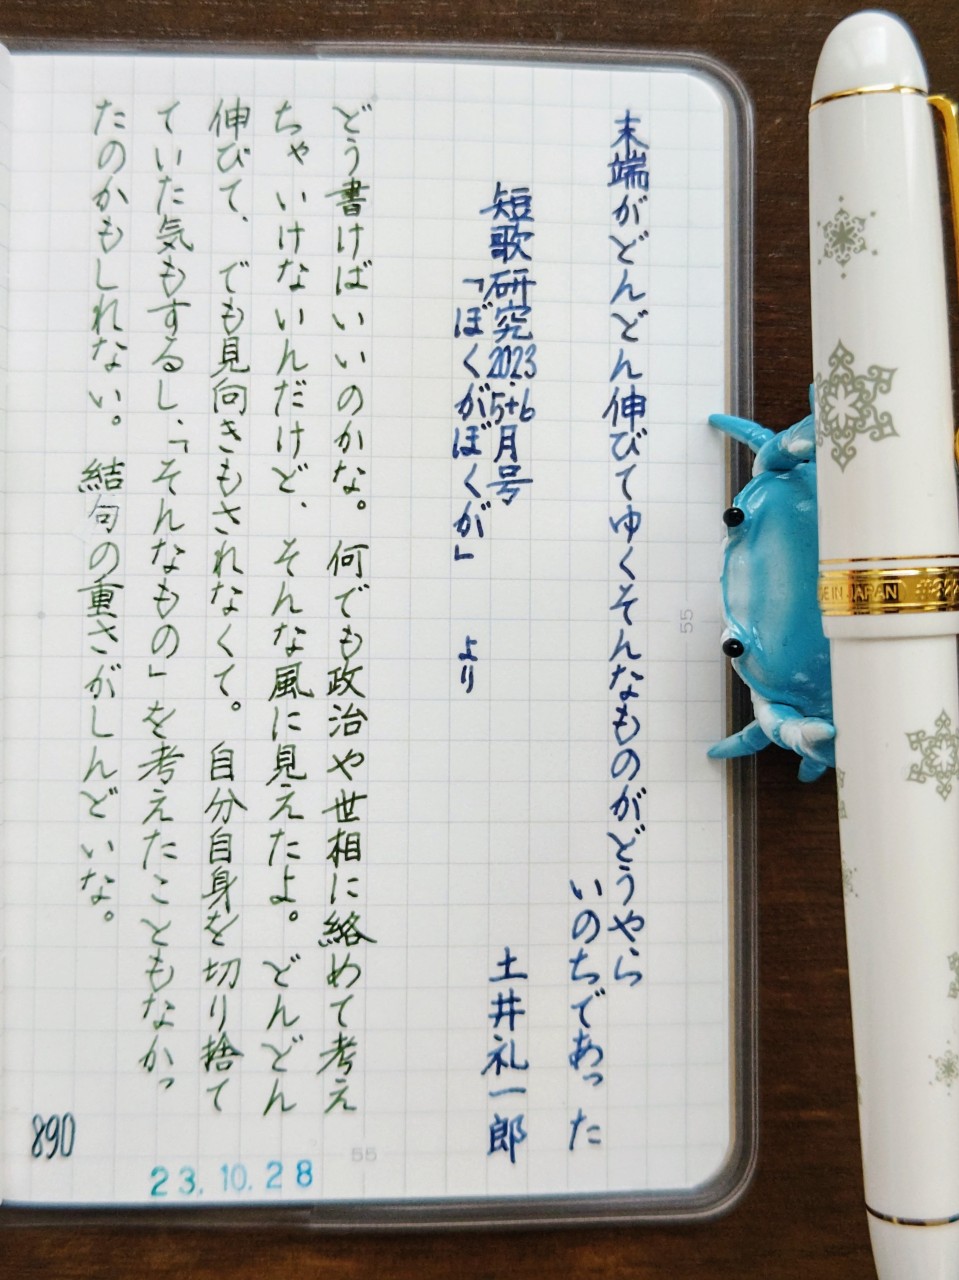 末端がどんどん伸びてゆくそんなものがどうやら
いのちであった
短歌研究2023.5+6月号
「ぼくがぼくが」 より
土井礼一郎
どう書けばいいのかな。何でも政治や世相に絡めて考え
ちゃいけないんだけど、そんな風に見えたよ。どんどん
伸びて、でも見向きもされなくて。自分自身を切り捨て
ていた気もするし、「そんなもの」を考えたこともなかっ
たのかもしれない。結句の重さがしんどいな。
890
23.10.28
55
55
IN JAPAN